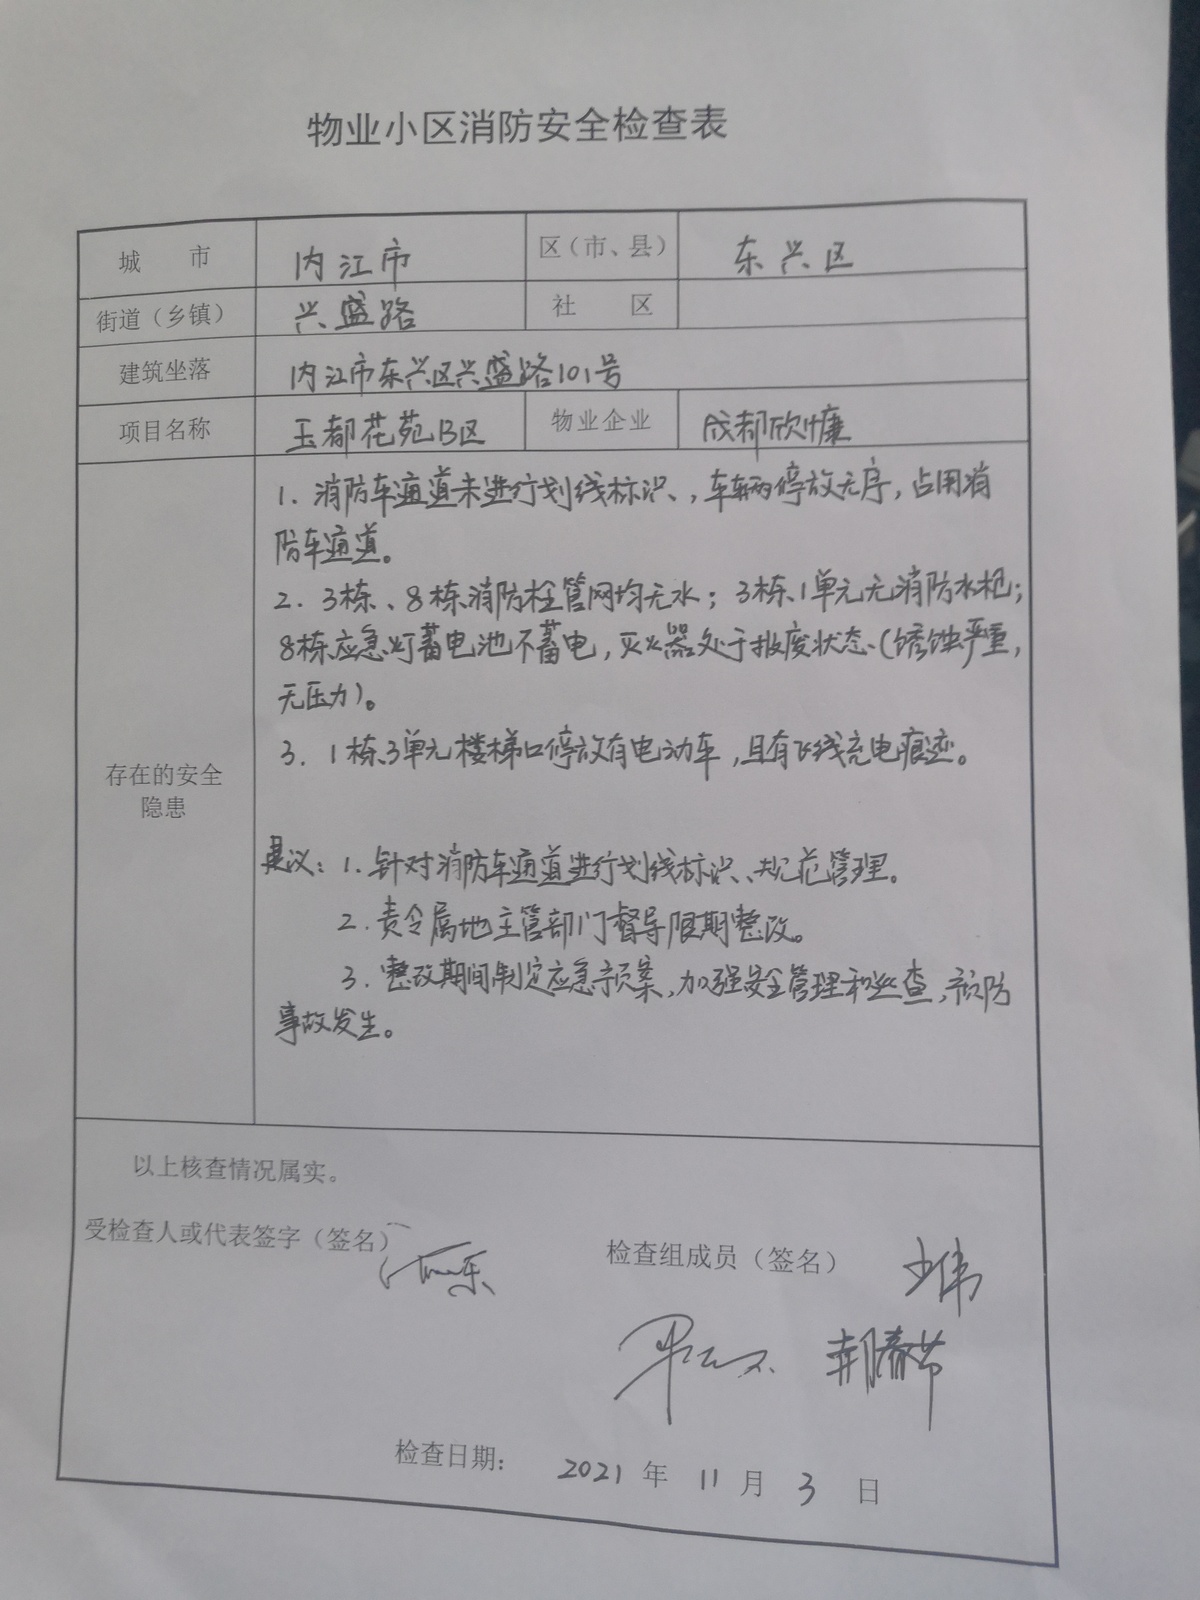 物业小区消防安全检查表
城 市 内江市 区（市、县） 东兴区
街道（乡镇） 兴盛路 社 区
建筑坐落 内江市东兴区兴盛路101号
项目名称 玉都花苑B区 物业企业 成都欣慷
1. 消防车通道未进行划线标识、，车辆停放无序，占用消
防车通道。
2. 3栋、8栋消防栓管网均无水；3栋1单元无消防水枪；
8栋应急灯蓄电池不蓄电，灭火器处于报废状态（锈蚀严重，
无压力）。
3. 1栋3单元楼梯口停放有电动车，且有飞线充电痕迹。
存在的安全
隐患
建议：1. 针对消防车通道进行划线标识、规范管理。
2. 责令属地主管部门督导限期整改。
3. 整改期间制定应急预案，加强安全管理和巡查，预防
事故发生。
以上核查情况属实。
受检查人或代表签字（签名）
检查组成员（签名）
检查日期： 2021 年 11 月 3 日